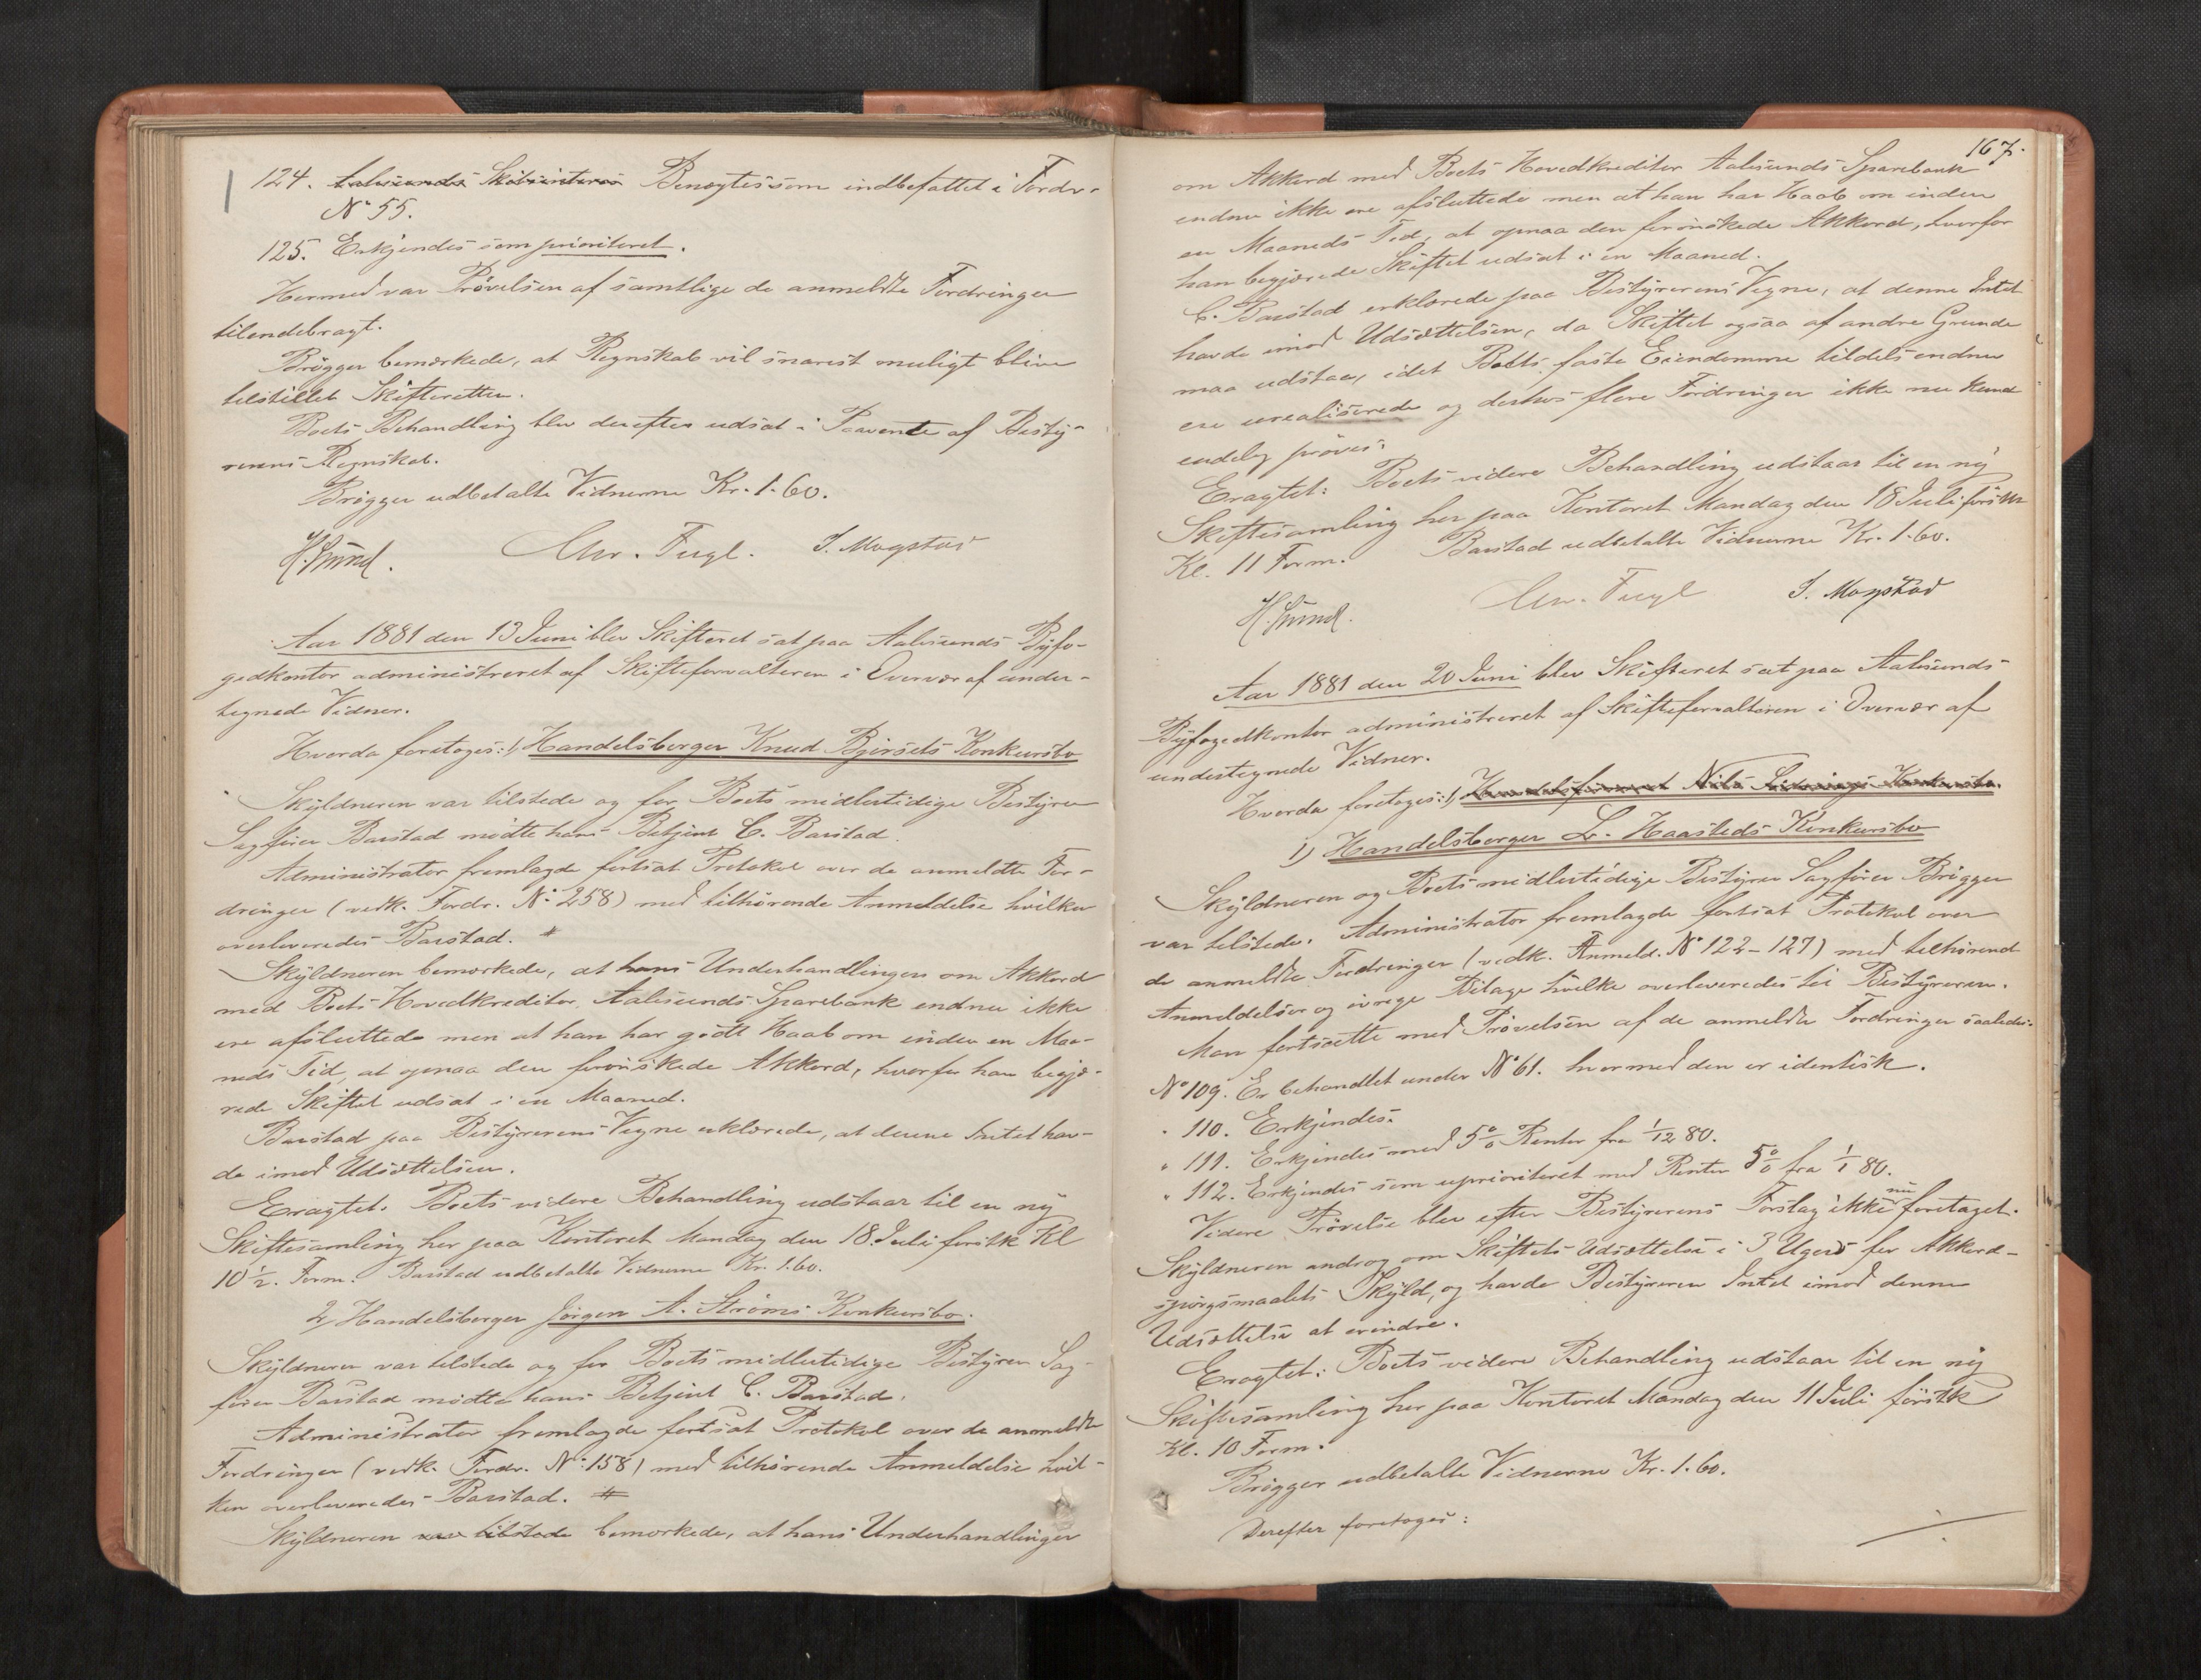 124. Aalesunds Skibsinteres Benægtes som indbefattet i Fordr.
No 55.
125. Erkjendes som prioriteret.
Hermed var Prøvelsen af samtlige de anmeldte Fordringer
tilendebragt.
Brögger bemærkede, at Regnskab vil snarest muligt blive
tilstillet Skifteretten.
Boets Behandling blev derefter udsat i Paavente af Besty-
rerens Regnskab.
Brögger udbetalte Vidnerne Kr. 1.60.
Chr. Fugl. J. Mogstad
Aar 1881 den 13 Juni blev Skifteret sat paa Aalesunds Byfo-
gedkontor administreret af Skifteforvalteren i Overvær af under-
tegnede Vidner.
Hvorda foretoges: 1) Handelsborger Knud Bjørsets Konkursbo
Skyldneren var tilstede og for Boets midlertidige Bestyrer
Sagfører Barstad mødte hans Betjent C. Barstad.
Administrator fremlagde fortsat Protokol over de anmeldte For-
dringer (vedk. Fordr. No 258) med tilhørende Anmeldelse hvilken
overleveredes Barstad. #
Skyldneren bemærkede, at hans Underhandlinger om Akkord
med Boets Hovedkreditor Aalesunds Sparebank endnu ikke
ere afsluttede men at han har godt Haab om inden en Maa-
neds Tid, at opnaa den forønskede Akkord, hvorfor han begjæ-
rede Skiftet udsat i en Maaned.
Barstad paa Bestyrerens Vegne erklærede, at denne Intet hav-
de imod Udsættelsen.
Eragtet. Boets videre Behandling udstaar til en ny
Skiftesamling her paa Kontoret Mandag den 18. Juli førstk Kl
10 1/2. Form. Barstad udbetalte Vidnerne Kr. 1.60.
2) Handelsborger Jørgen A. Strøms Konkursbo.
Skyldneren var tilstede og for Boets midlertidige Bestyrer Sag-
fører Barstad mødte hans Betjent C. Barstad.
Administrator fremlagde fortsat Protokol over de anmeldte
Fordringer (vedk. Fordr. No 158) med tilhørende Anmeldelse hvil-
ken overleveredes Barstad. #
Skyldneren var tilstede bemærkede, at hans Underhandlinger
167.
om Akkord med Boets Hovedkreditor Aalesunds Sparebank
endnu ikke ere afsluttede men at han har Haab om inden
en Maaneds Tid, at opnaa den forønskede Akkord, hvorfor
han begjærede Skiftet udsat i en Maaned.
C. Barstad erklærede paa Bestyrerens Vegne, at denne Intet
havde imod Udsættelsen, da Skiftet ogsaa af andre Grunde
maa udstaa, idet Boets faste Eiendomme tildels endnu
ere urealiserede og derhos flere Fordringer ikke nu kund
endelig prøves.
Eragtet: Boets videre Behandling udstaar til en ny
Skiftesamling her paa Kontoret Mandag den 18 Juli førstk
Kl. 11 Form. Barstad udbetalte Vidnerne Kr. 1.60.
Chr. Fugl J. Mogstad
Aar 1881 den 20 Juni blev Skifteret sat paa Aalesunds
Byfogedkontor administreret af Skifteforvalteren i Overvær af
undertegnede Vidner.
Hvorda foretoges: 1) Handelsfirmaet Nils Konkursbo.
1) Handelsborger L. Haasteds Konkursbo
Skyldneren og Boets midlertidige Bestyrer Sagfører Brögger
var tilstede. Administrator fremlagde fortsat Protokol over
de anmeldte Fordringer (vedk. Anmeld. No 122-127) med tilhørend
Anmeldelser og øvrige Bilage hvilke overleveredes til Bestyreren.
Man fortsætte med Prøvelsen af de anmeldte Fordringer saaledes:
No 109. Er behandlet under No 61. hvormed den er identisk.
" 110. Erkjendes.
" 111. Erkjendes med 5 % Renter fra 1/12 80.
" 112. Erkjendes som uprioriteret med Renter 5 % fra 1/1 80.
Videre Prøvelse blev efter Bestyrerens Forslag ikke nu foretaget.
Skyldneren androg om Skiftets Udsættelse i 3 Uger for Akkord-
spørgsmaalets Skyld, og havde Bestyreren Intet imod denne
Udsættelse at erindre.
Eragtet: Boets videre Behandling udstaar til en ny
Skiftesamling her paa Kontoret Mandag den 11 Juli førstk
Kl. 10 Form.
Brögger udbetalte Vidnerne Kr. 1.60.
Derefter foretoges: